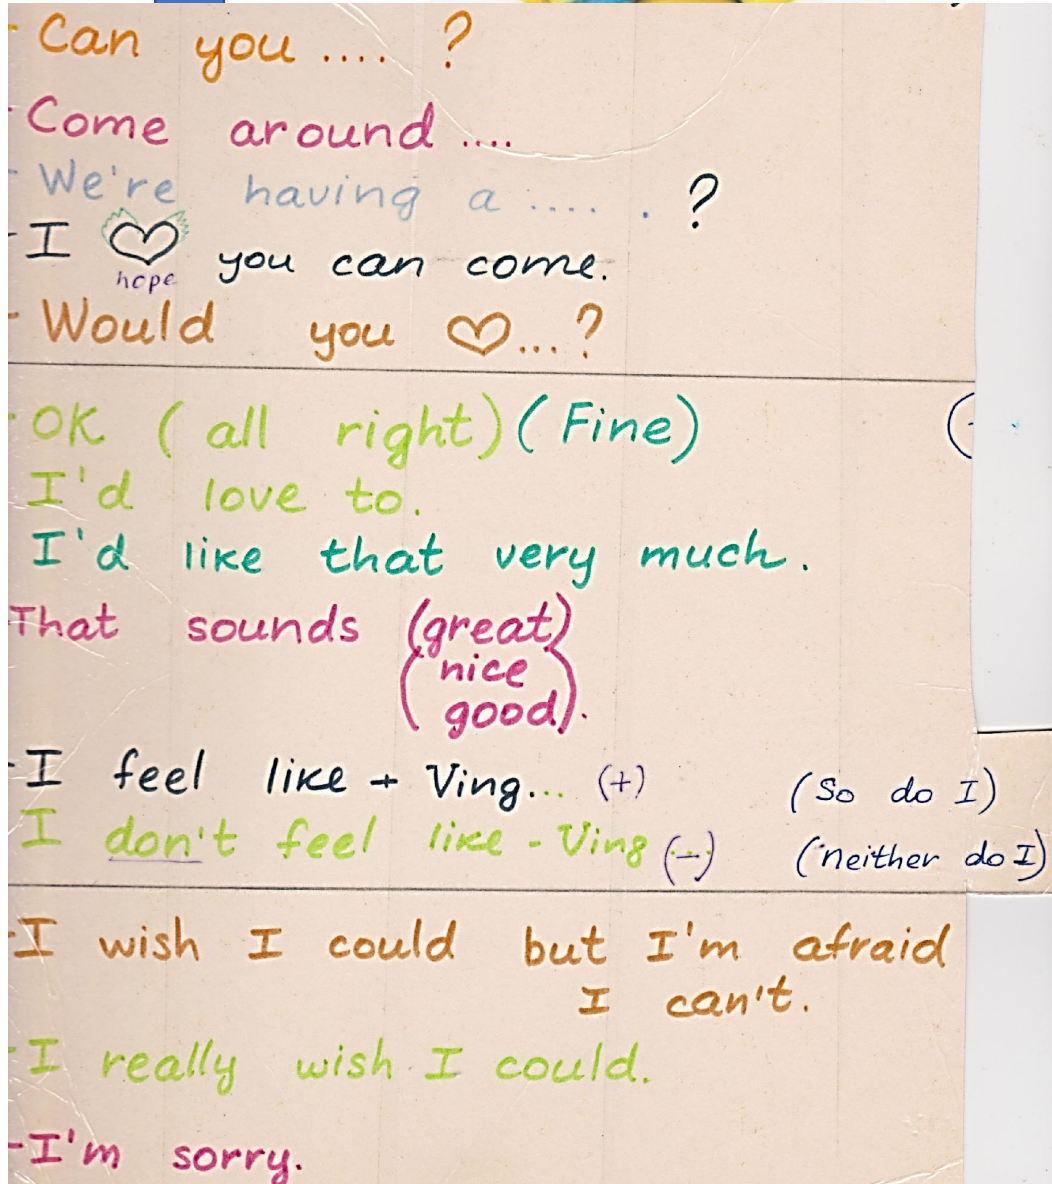 - Can you .... ?
- Come around ....
- We're having a ..... . ?
- I ♡ you can come.
hope
- Would you ♡...?
- OK (all right) (Fine) (-
I'd love to.
I'd like that very much.
That sounds (great)
(nice
good).
- I feel like + Ving... (+) (So do I)
I don't feel like - Ving... (-) (neither do I)
- I wish I could but I'm afraid
I can't.
- I really wish I could.
- I'm sorry.